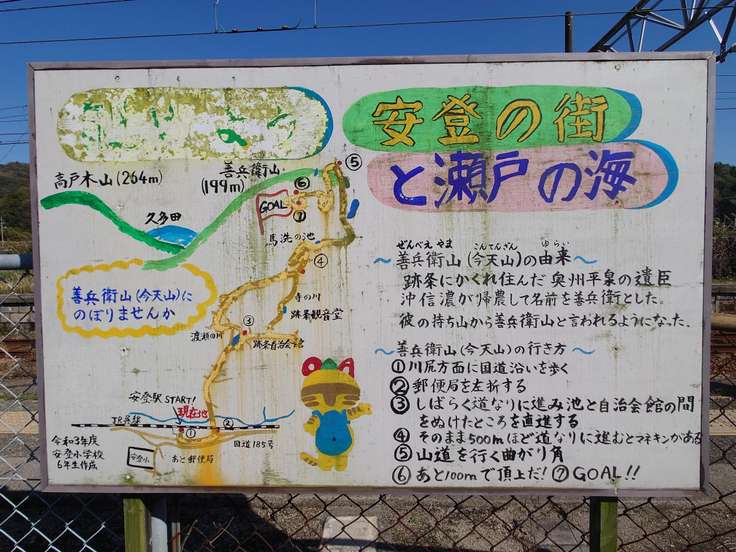 安登の街
と瀬戸の海
高戸木山(264m)
善兵衛山
(199m)
⑤
⑥
GOAL
⑦
久多田
馬洗の池
④
善兵衛山(今天山)に
のぼりませんか
寺の川
跡条観音堂
渡瀬の川
③
跡条自治会館
安登駅START!
現在地
JR呉線
①
②
国道185号
安登小
あと郵便局
令和3年度
安登小学校
6年生作成
ぜんべえ やま こんてんざん ゆらい
～善兵衛山(今天山)の由来～
跡条にかくれ住んだ奥州平泉の遺臣
沖信濃が帰農して名前を善兵衛とした。
彼の持ち山から善兵衛山と言われるようになった。
～善兵衛山(今天山)の行き方～
①川尻方面に国道沿いを歩く
②郵便局を左折する
③しばらく道なりに進み池と自治会館の間
をぬけたところを直進する
④そのまま500mほど道なりに進むとマネキンがある
⑤山道を行く曲がり角
⑥あと100mで頂上だ!⑦GOAL!!